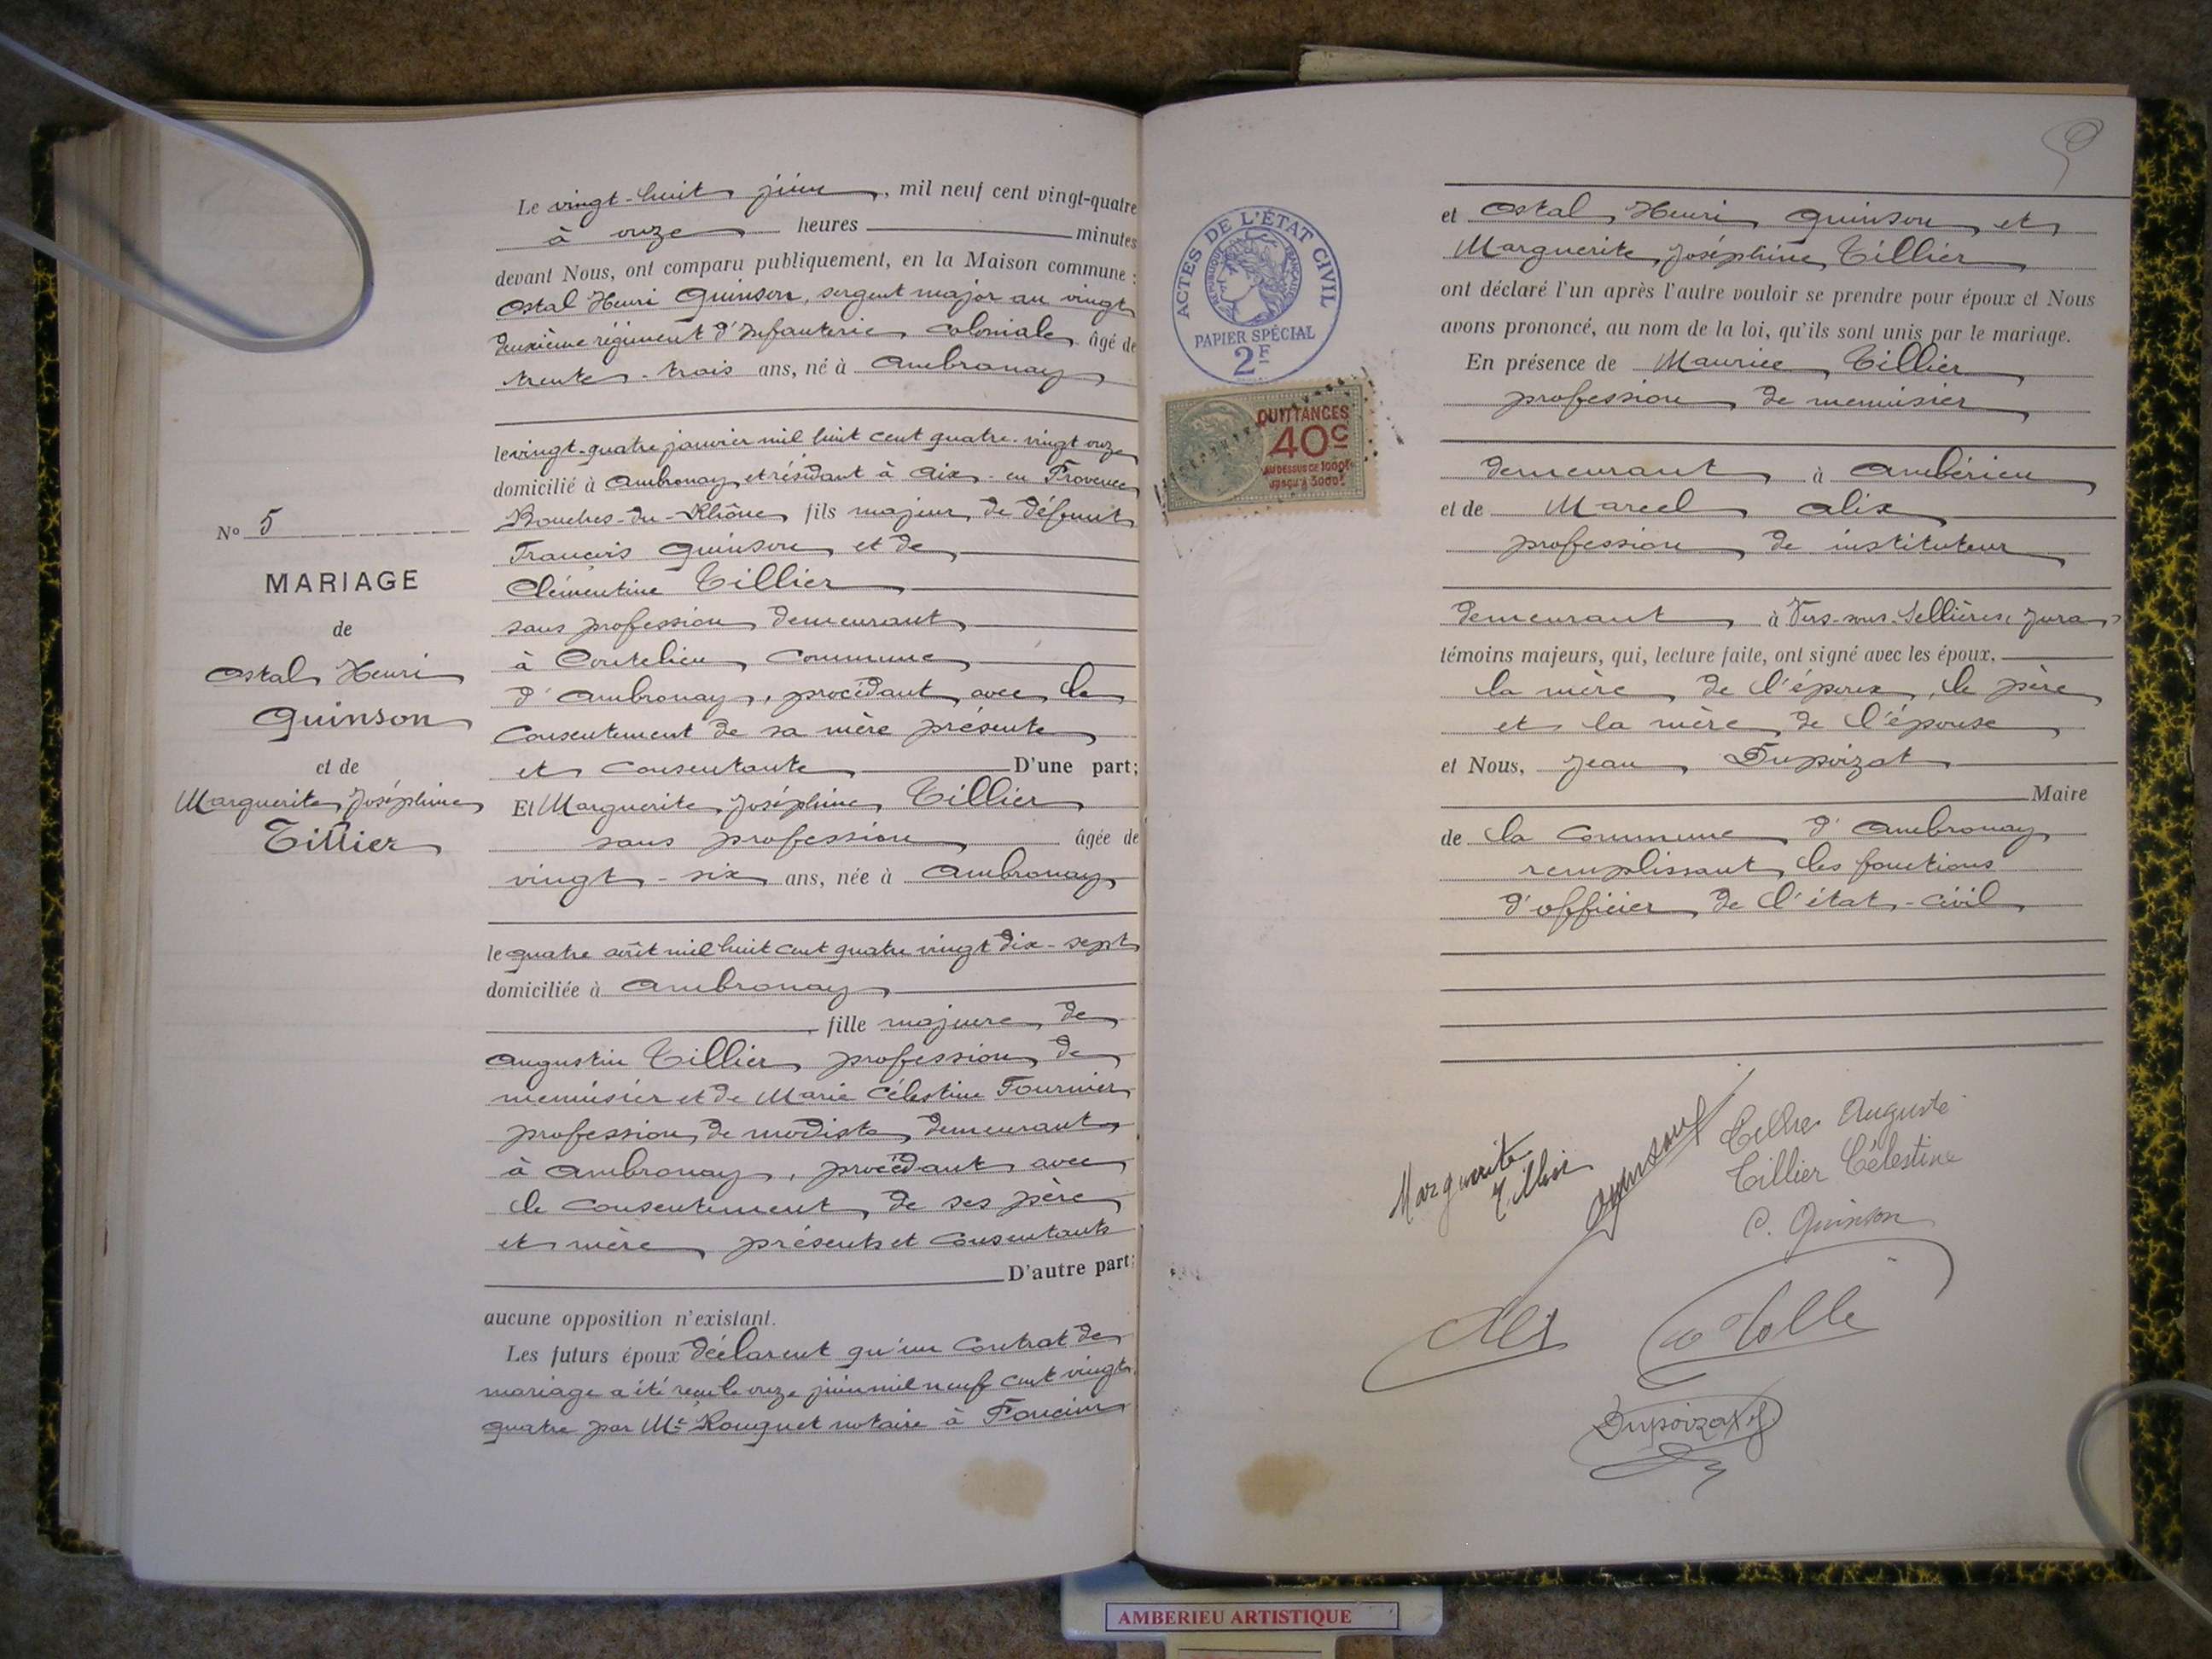 Le vingt-huit juin, mil neuf cent vingt-quatre
à onze heures minutes
devant Nous, ont comparu publiquement, en la Maison commune :
Ostal Henri Quinson, sergent major au vingt
deuxième régiment d'Infanterie coloniale âgé de
trente-trois ans, né à Ambronay
le vingt-quatre janvier mil huit cent quatre-vingt onze
domicilié à Ambronay et résidant à Aix-en Provence
Bouches-du-Rhône fils majeur de défunt
François Quinson et de
Clémentine Tillier
sans profession demeurant
à Coutelieu Commune
d'Ambronay, procédant avec le
Consentement de sa mère présente
et consentante D'une part;
Et Marguerite Joséphine Tillier
sans profession âgée de
vingt-six ans, née à Ambronay
le quatre août mil huit cent quatre vingt dix-sept
domiciliée à Ambronay
fille majeure de
Augustin Tillier profession de
menuisier et de Marie Célestine Fournier
profession de modiste demeurant
à Ambronay, procédant avec
le consentement de ses père
et mère présents et consentants
D'autre part;
aucune opposition n'existant.
Les futurs époux déclarent qu'un contrat de
mariage a été reçu le onze juin mil neuf cent vingt
quatre par Me Rouguet notaire à Foncine
No 5
MARIAGE
de
Ostal Henri
Quinson
et de
Marguerite Joséphine
Tillier
ACTES DE L'ÉTAT CIVIL
RÉPUBLIQUE FRANÇAISE
PAPIER SPÉCIAL
2F
QUITTANCES
40c
AU DESSUS DE 1000f
JUSQU'À 3000f
et Ostal Henri Quinson et
Marguerite Joséphine Tillier
ont déclaré l'un après l'autre vouloir se prendre pour époux et Nous
avons prononcé, au nom de la loi, qu'ils sont unis par le mariage.
En présence de Maurice Tillier
profession de menuisier
demeurant à Ambérieu
et de Marcel Alix
profession de instituteur
demeurant à Vers-sous-Sellières (Jura)
témoins majeurs, qui, lecture faite, ont signé avec les époux,
la mère de l'époux, le père
et la mère de l'épouse
et Nous, Jean Dupoizat
Maire
de la Commune d'Ambronay
remplissant les fonctions
d'officier de l'état-civil
Marguerite
Tillier
Quinson
Tillier Auguste
Tillier Célestine
C. Quinson
Dupoizat J.
AMBERIEU ARTISTIQUE